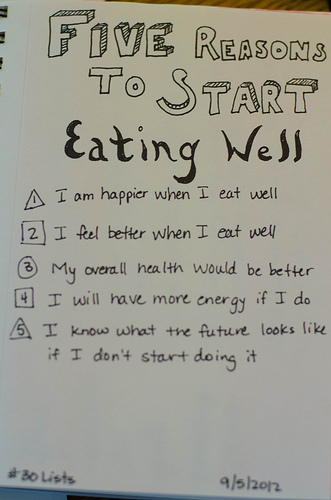 FIVE REASONS
TO START
Eating Well
1 I am happier when I eat well
2 I feel better when I eat well
3 My overall health would be better
4 I will have more energy if I do
5 I know what the future looks like
if I don't start doing it
#30Lists 9/5/2012